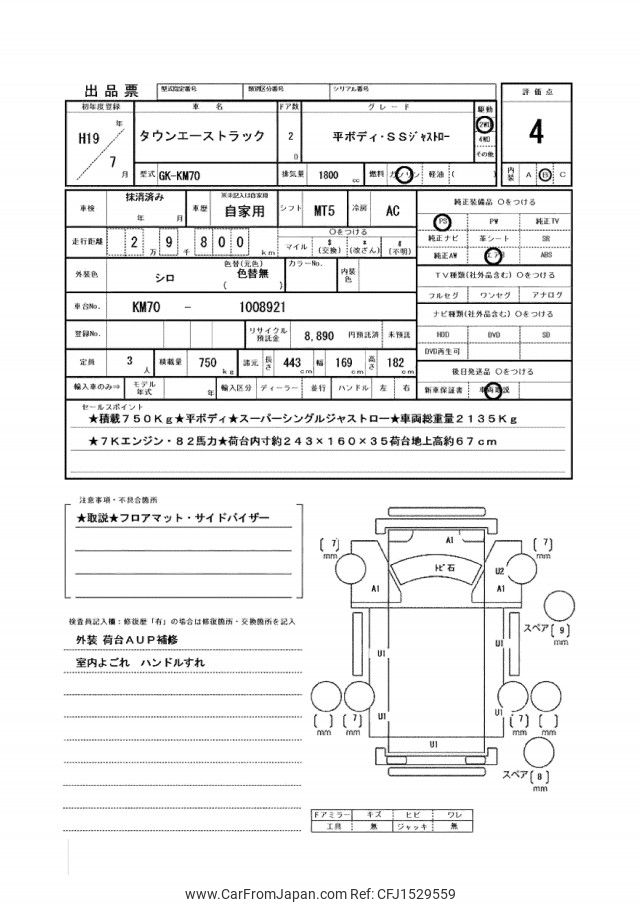 出品票 型式指定番号 類別区分番号 シリアル番号
初年度登録 車 名 ドア数 グレード 駆動 評価点
H19 年 7 月 タウンエーストラック 2 D 平ボディ・SSジャストロー 2WD 4WD その他 4
型式 GK-KM70 排気量 1800 cc 燃料 ガソリン 軽油 ( ) 内装 A B C
車検 抹消済み 年 月 車歴 ※未記入は自家用 自家用 シフト MT5 冷房 AC
純正装備品 Oをつける
PS PW 純正TV
走行距離 2 9 万 8 千 0 0 km Oをつける
マイル $ (交換) * (改ざん) # (不明)
純正ナビ 革シート SR
純正AW エアB ABS
外装色 シロ 色替(元色) 色替無 ( ) カラーNo. 内装色
TV種類(社外品含む) Oをつける
フルセグ ワンセグ アナログ
車台No. KM70 - 1008921
ナビ種類(社外品含む) Oをつける
登録No. リサイクル預託金 8,890 円預託済 未預託
HDD DVD SD
DVD再生可
定員 3 人 積載量 750 kg 諸元 長さ 443 cm 幅 169 cm 高さ 182 cm
後日発送品 Oをつける
輸入車のみ⇒ モデル年式 年 輸入区分 ディーラー 並行 ハンドル 左 右
新車保証書 車両取説
セールスポイント
★積載750Kg★平ボディ★スーパーシングルジャストロー★車両総重量2135Kg
★7Kエンジン・82馬力★荷台内寸約243×160×35荷台地上高約67cm
注意事項・不具合箇所
★取説★フロアマット・サイドバイザー
検査員記入欄：修復歴「有」の場合は修復箇所・交換箇所を記入
外装 荷台AUP補修
室内よごれ ハンドルすれ
A1
(7) mm
(7) mm
トビ石
U2
A1
A1
スペア (9) mm
U1
U1
U1
U1
( ) mm
(7) mm
(7) mm
( ) mm
U1
スペア (8) mm
ドアミラー キズ ヒビ ワレ
工具 無 ジャッキ 無
www.CarFromJapan.com Ref: CFJ1529559